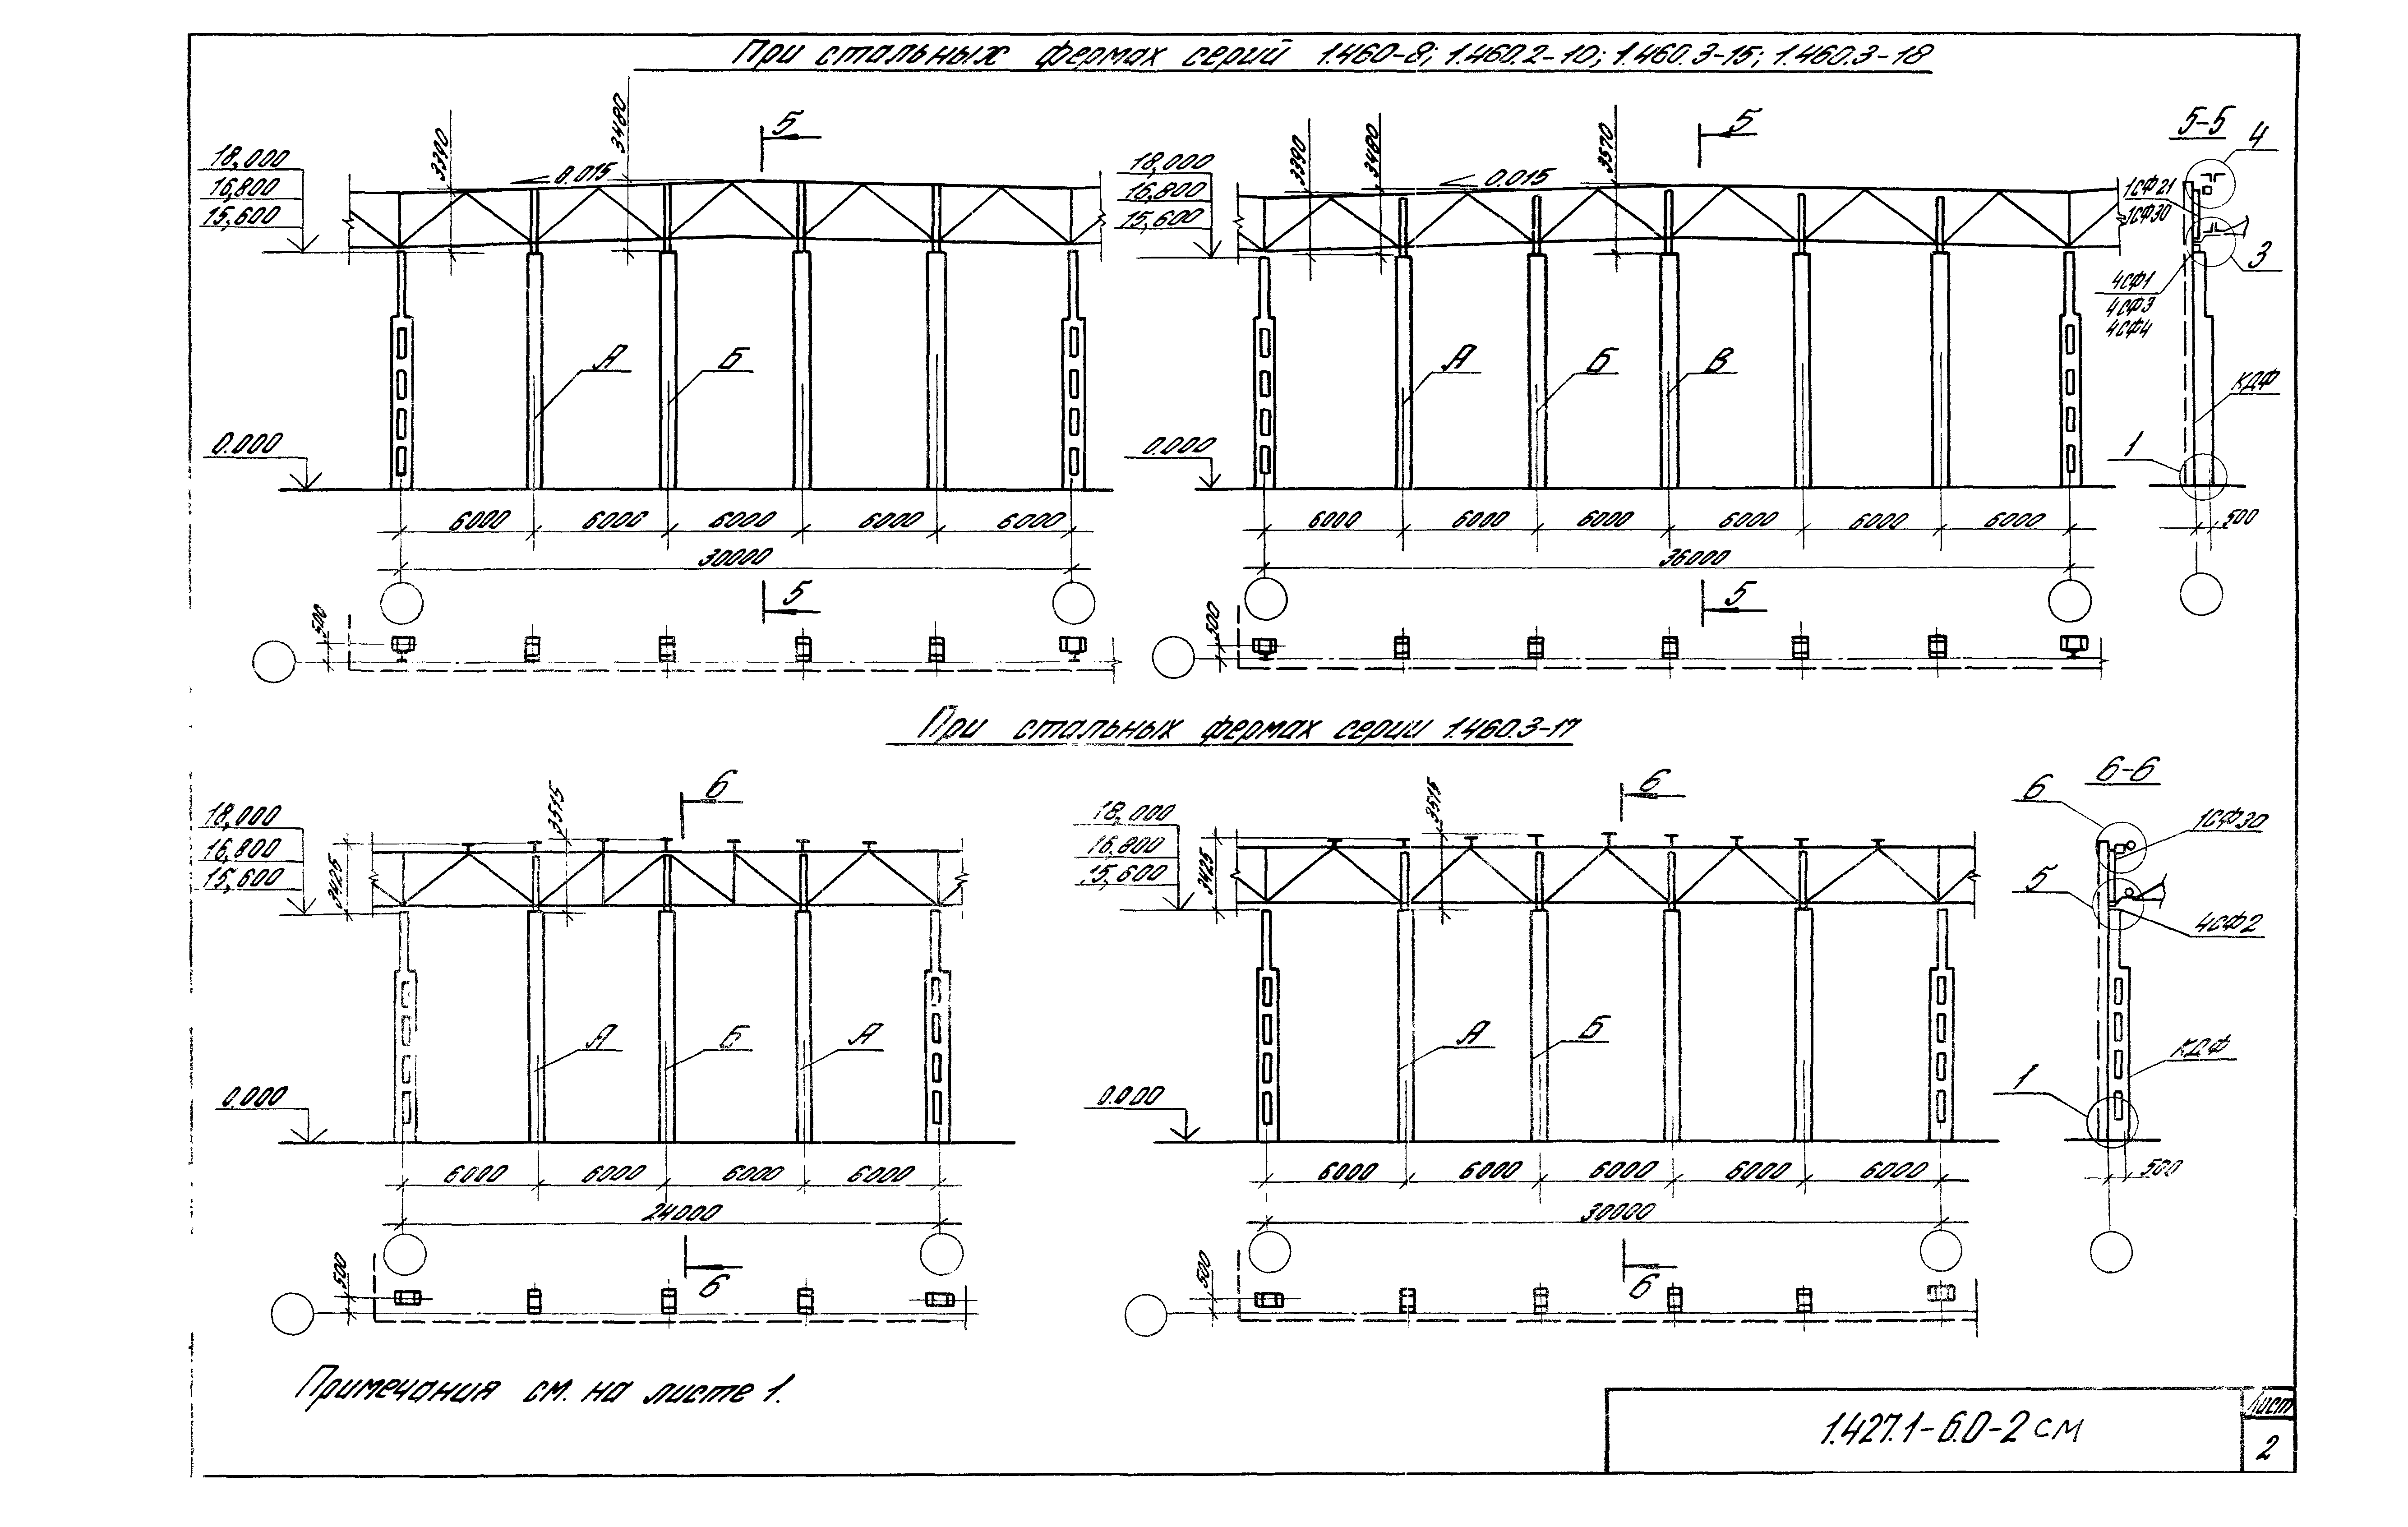 При стальных фермах серий 1.460-8; 1.460.2-10; 1.460.3-15; 1.460.3-18
18,000
16,800
15,600
3390
0.015
3480
5
А
Б
0.000
6000 6000 6000 6000 6000
30000
5
500
18,000
16,800
15,600
3390
3480
0.015
3570
5
А
Б
В
0.000
6000 6000 6000 6000 6000 6000
36000
5
500
5-5
4
1СФ21
1СФ30
3
4СФ1
4СФ3
4СФ4
КДФ
1
500
При стальных фермах серии 1.460.3-17
18,000
16,800
15,600
3425
3515
6
А
Б
А
0.000
6000 6000 6000 6000
24000
6
500
18,000
16,800
15,600
3425
3515
6
А
Б
0.000
6000 6000 6000 6000 6000
30000
6
500
6-6
6
1СФ30
5
4СФ2
КДФ
1
500
Примечания см. на листе 1.
1.427.1-6.0-2 СМ
Лист
2